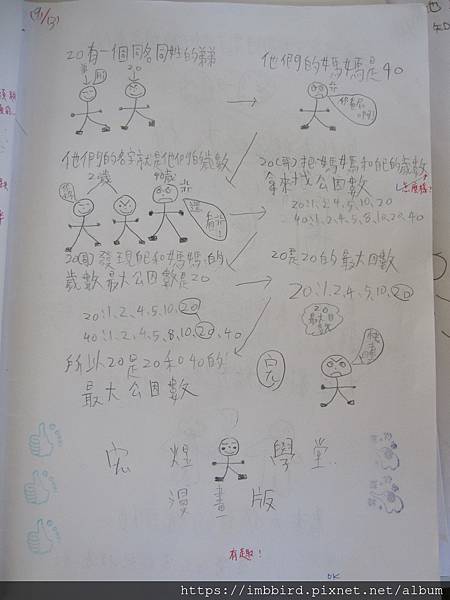 (9/13)
20有一個同名同姓的弟弟
弟
20
他們的媽媽是40
他們的名字就是他們的歲數
20歲
40歲
20(哥)把媽媽和他的歲數
拿來找公因數
怎麼樣?
20:1,2,4,5,10,20
40:1,2,4,5,8,10,20,40
20發現他和媽媽的
歲數最大公因數是20
20:1,2,4,5,10,20
40:1,2,4,5,8,10,20,40
20是20的最大因數
20:1,2,4,5,10,20
所以20是20和40的
最大公因數
完
宏煌學堂
漫畫版
有趣!
OK
https://imbbird.pixnet.net/album